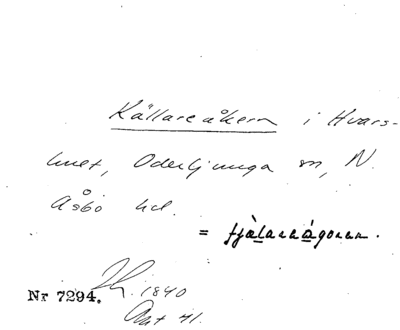 Källareåkern i Hvars-
hult, Oderljunga sn, N.
Åsbo hd.
= tjàlaraágoren.
Nr 7294. 1840
Ant 41.